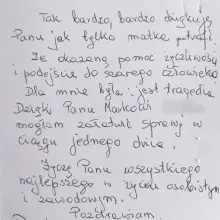 Tak bardzo, bardzo dziękuję
Panu jak tylko matka potrafi
Za okazaną pomoc życzliwość
i podejście do szarego człowieka
Dla mnie była i jest tragedia
Dzięki Panu Markowi
mogłam załatwić sprawy w
ciągu jednego dnia.
Życzę Panu wszystkiego
najlepszego w życiu osobistym
i zawodowym.
Pozdrawiam